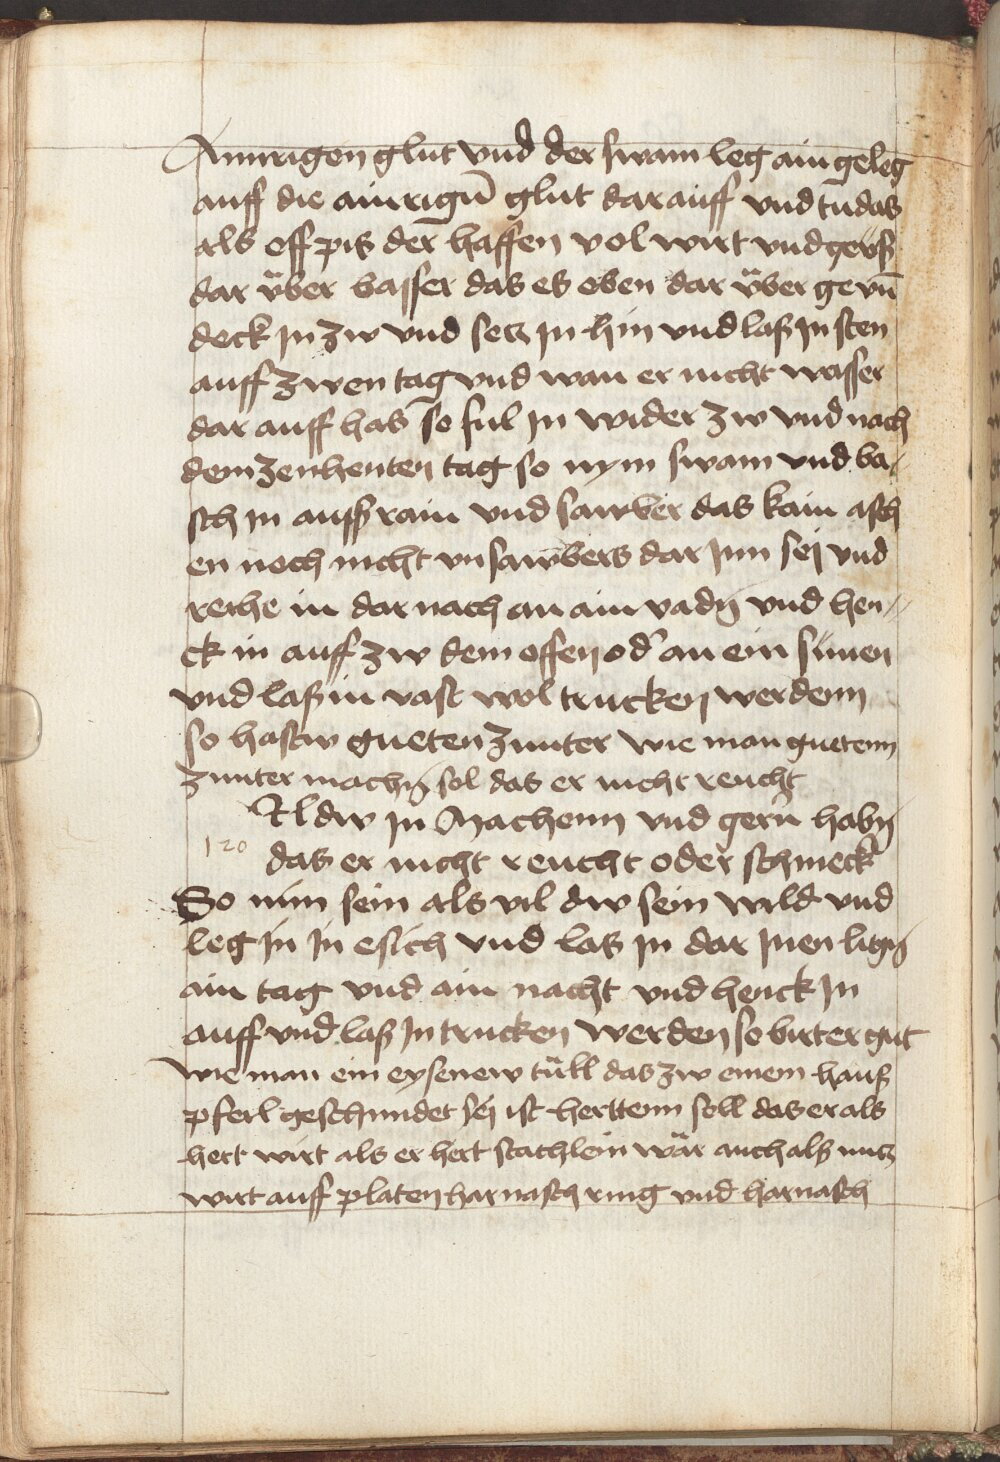 Aimrigen glut vnd der swam leg ain geleg
auff die aimrigū glut darauff vnd tu das
als off pis der haffen vol wirt vnd geus
dar vber basser das es oben dar vber ge vn̄
deck in zw vnd setz in hin vnd las in sten
auff zwen tag vnd wan er nicht wasser
dar auff hab so ful in wider zw vnd nach
dem zenhenten tag so nym swam vnd ba-
sch in auss rain vnd sawber das kain asch
en noch nicht vnsawbers dar Inn sej vnd
reche in dar nach an ain vadn vnd hen-
ck in auff zw dem offen od' an ein sunen
vnd las in vast wol trucken werdenn
so hastw gueten zunter wie man guetenn
zunter machn sol das er nicht reucht
Ild dw in Machenn vnd gern habn
120
das er nicht reucht oder schmeck
So nim sein als vil dw sein wild vnd
leg in in esich vnd las in dar Inen lign
ain tag vnd ain nacht vnd henck in
auff vnd las in trucken werden so birt er gut
wie man ein eysenew tüll das zw einem haus
pferl geschmidet sej ist herttenn soll das er als
hert wirt als er hert stachlein wär auch als nutz
wirt auff platen harnasch ring vnd harnasch